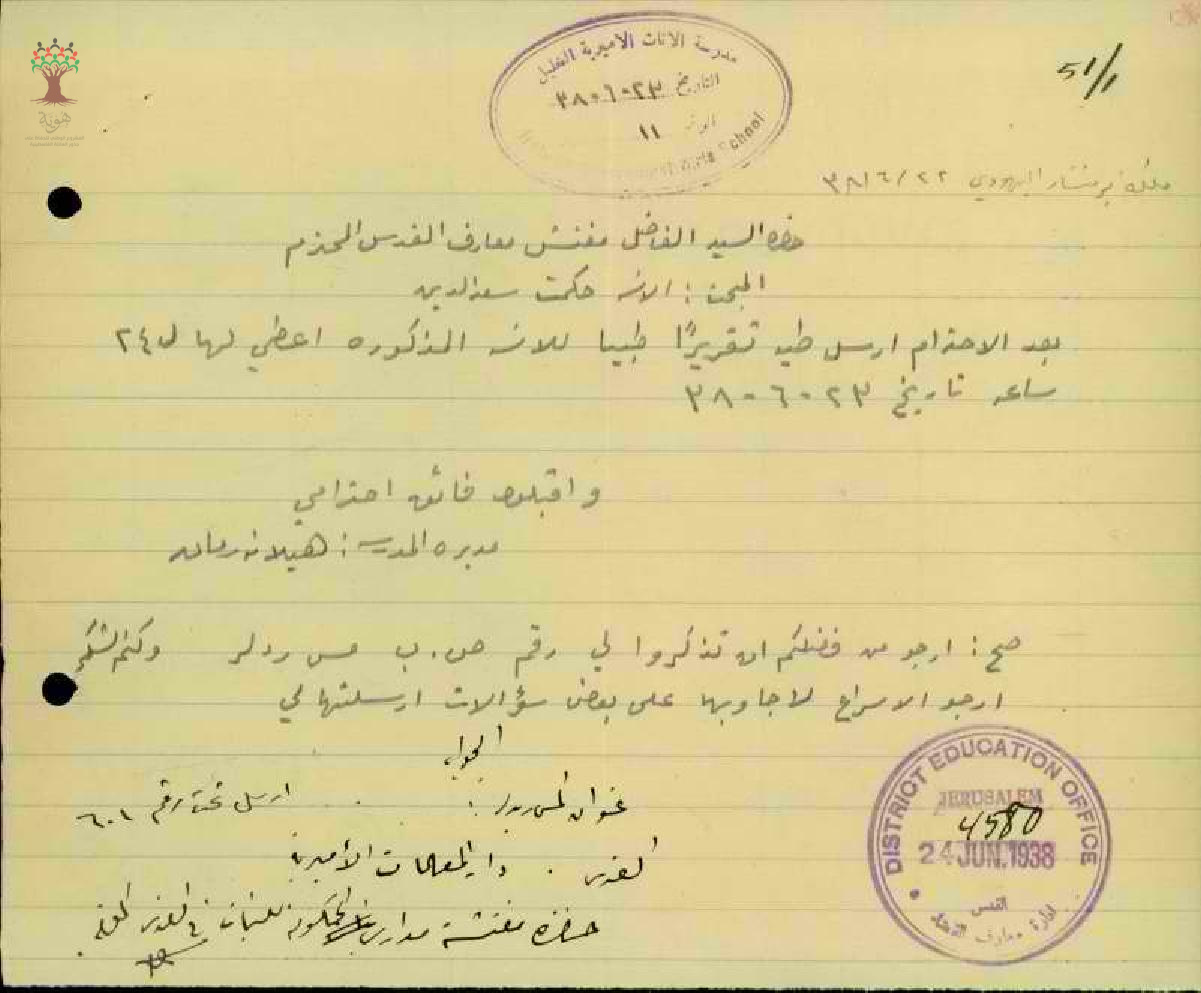 51/1
مدرسة الاناث الاميرية الخليل
التاريخ ٢٣-٦-٣٨
١١
Girls School
٣٨/٦/٢٢
حضرة السيد الفاضل مفتش معارف القدس المحترم
المبحث : الانسه حكمت سعد الدين
بعد الاحترام ارسل طيه تقريرًا طبيا للانسه المذكوره اعطي لها ل ٢٤
ساعه تاريخ ٢٣-٦-٣٨
و اقبلوا فائق احترامي
مديره المدرسه : هيلانه رمان
صح : ارجو من فضلكم ان تذكروا لي رقم ص . ب مس ردلر ولكم الشكر
ارجو الاسراع لاجاوبها على بعض سؤالات ارسلتها لي
الجواب
عنوان المس ردلر : ارسل تحت رقم ٦٠١
القدس . دار المعلمات الأميرية
حضرة مفتشة مدارس الحكومة للبنات في القدس
DISTRICT EDUCATION OFFICE
JERUSALEM
4580
24 JUN. 1938
القدس
ادارة معارف اللواء
هوية